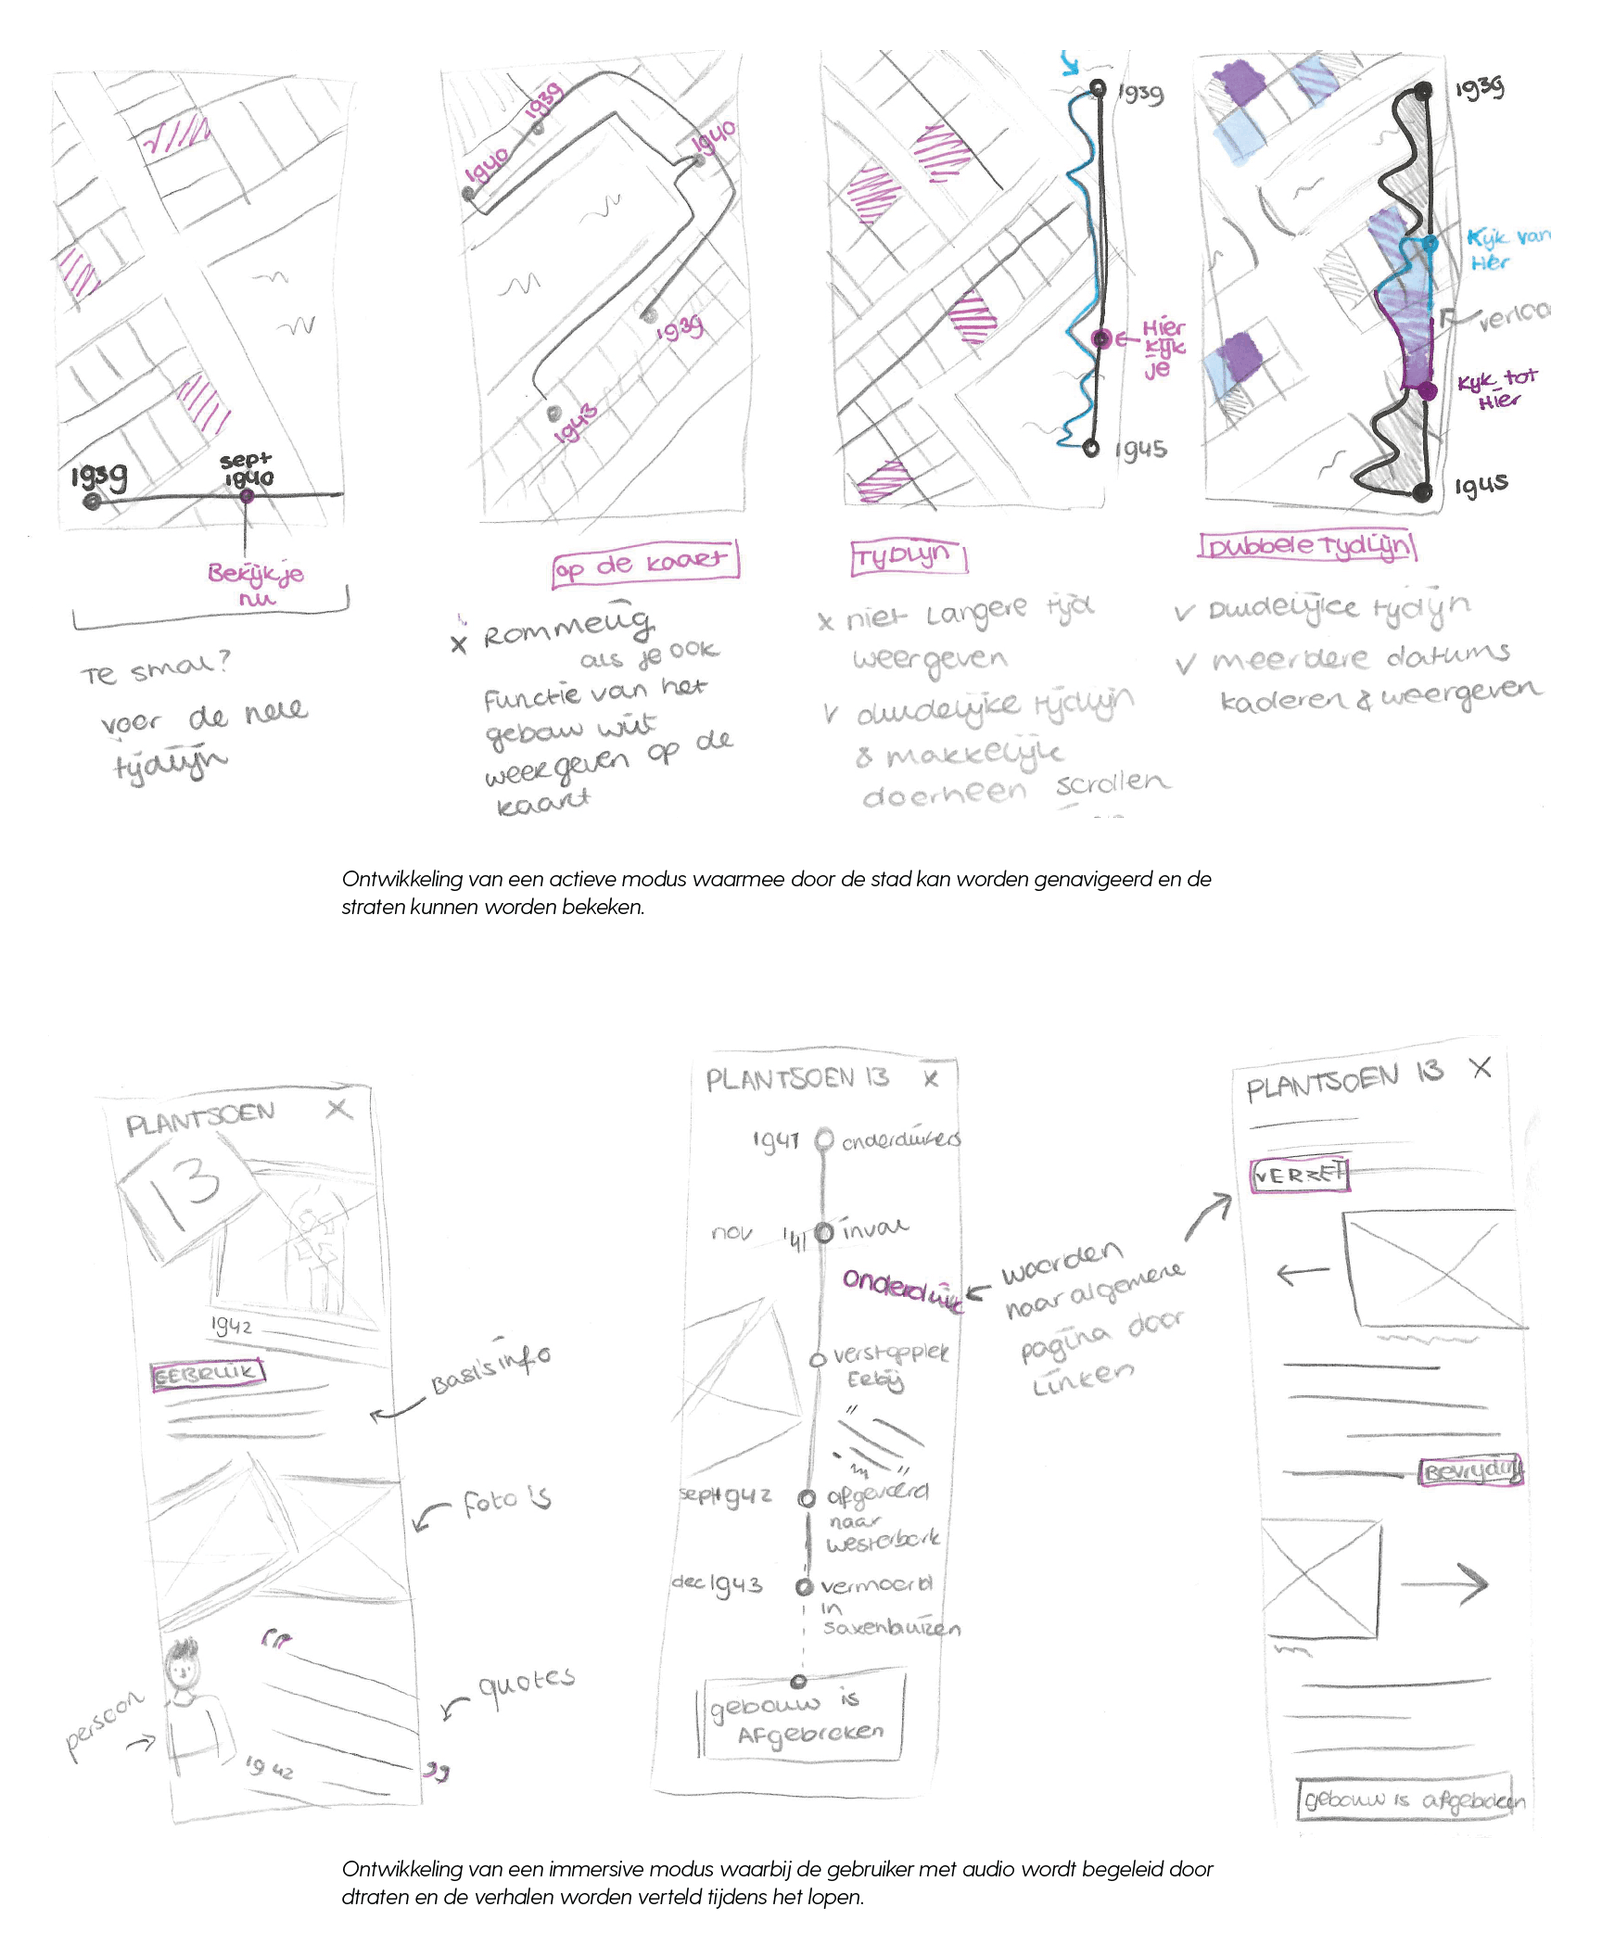 1939
sept
1940
Bekijk je
nu
Te smal?
voor de hele
tijdlijn
1939
1940
1940
1939
1943
op de kaart
x Rommelig
als je ook
functie van het
gebouw wilt
weergeven op de
kaart
1939
Hier
kijk
je
1945
Tijdlijn
x niet langere tijd
weergeven
v duidelijke tijdlijn
& makkelijk
doorheen scrollen
1939
Kijk van
Hier
Kijk tot
Hier
1945
Dubbele Tijdlijn
v Duidelijke tijdlijn
v meerdere datums
kaderen & weergeven
Ontwikkeling van een actieve modus waarmee door de stad kan worden genavigeerd en de
straten kunnen worden bekeken.
PLANTSOEN X
13
1942
GEBRUIK
Basisinfo
foto's
persoon
quotes
1942
PLANTSOEN 13 X
1941 onderduikers
nov '41 inval
onderduik
woorden
naar algemene
pagina door
linken
verstopplek
sept 1942 afgevoerd
naar
westerbork
dec 1943 vermoord
in
gebouw is
Afgebroken
PLANTSOEN 13 X
VERZET
Bevrijding
gebouw is afgebroken
Ontwikkeling van een immersive modus waarbij de gebruiker met audio wordt begeleid door
dtraten en de verhalen worden verteld tijdens het lopen.